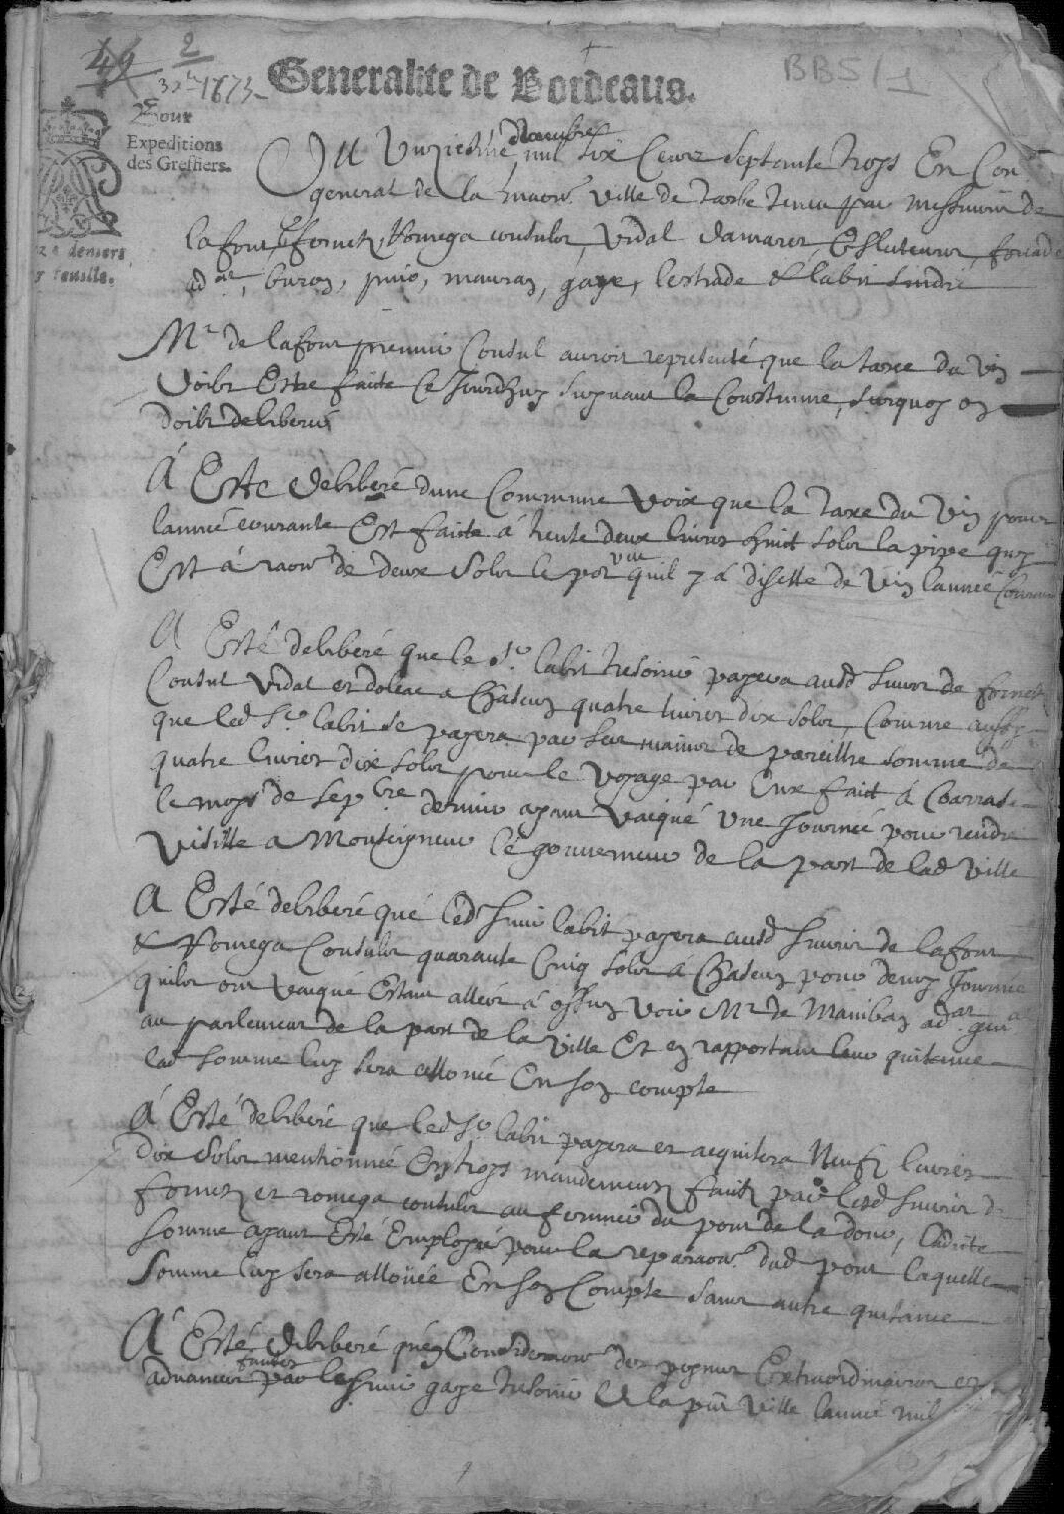 49 2
32 1673
BB5/1
Generalite de Bordeaus.
Pour
Expeditions
des Greffiers.
deniers
feuille.
Du Unziesme novembre mil six Cens septante troys En Con
general de la maon ville de tarbe tenu par messieurs de
lafont, fornetz Romega consulz, vidal damaret Esluteurs, fourcade
adat, buron, pujo, mauran, gaye, lestrade & labit sindic
Mr de lafont premier Consul auroit representé que la taxe du vin
doibt Estre faicte Ce Jourdhuy suyvant la Coustume, surquoy on
doibt deliberer
A Esté deliberé dune Commune voix que la taxe du vin pour
lannée courante Est faicte á trente deux livres huict solz la pipe quy
Est á raon de deux solz le pot veu quil y á disette de vin lannée Courante
A Esté deliberé que le sr labit tresorier payera ausd sieurs de fornetz
Consul vidal et doleac a Chascun quatre livres dix solz, Comme aussy
que led sr labit se payera par ses mains de pareilhe somme de
quatre livres dix solz pour le voyage par Eux faict á
le moys de sepbre dernier ayant vacqué une Journée pour rendre
visitte a Monseigneur le gouverneur de la part de lad ville
A Esté deliberé que led sieur labit payera ausd sieurs de lafont
& Romega Consulz quarante Cinq solz á Chascun pour demy Journée
quilz ont vacqué Estant allés á ossun voir Mr de Maniban adat gnal
au parlement de la part de la ville Et en rapportant leur quitance
lad somme luy sera allouée En son compte
A Esté deliberé que led sr labit payera et acquitera Neufz livres
dix solz mentionnée En troys mandemens faictz par lesd sieurs de
fornetz et romega consulz au fermier du pont de ladour, ladicte
somme ayant Esté Employée pour la reparaon dud pont laquelle
somme luy sera allouée En son Compte sans autre quitance
A Esté deliberé quen Consideraon des peynes Extraordinaires et
advances faictes par le sieur gaye tresorier de la pnt ville lannée mil